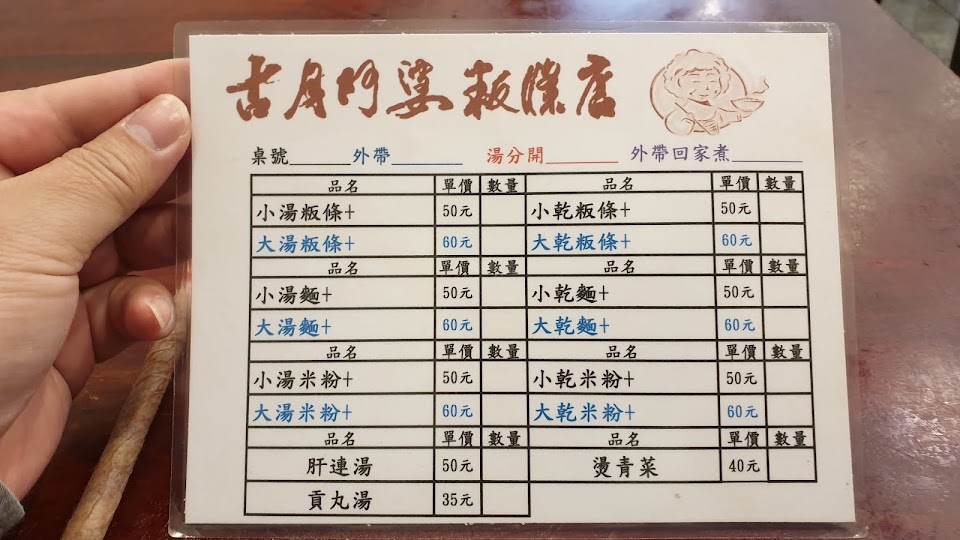 古月阿婆粄條店
桌號______ 外帶______ 湯分開______ 外帶回家煮______
品名 單價 數量 品名 單價 數量
小湯粄條+ 50元 小乾粄條+ 50元
大湯粄條+ 60元 大乾粄條+ 60元
品名 單價 數量 品名 單價 數量
小湯麵+ 50元 小乾麵+ 50元
大湯麵+ 60元 大乾麵+ 60元
品名 單價 數量 品名 單價 數量
小湯米粉+ 50元 小乾米粉+ 50元
大湯米粉+ 60元 大乾米粉+ 60元
品名 單價 數量 品名 單價 數量
肝連湯 50元 燙青菜 40元
貢丸湯 35元